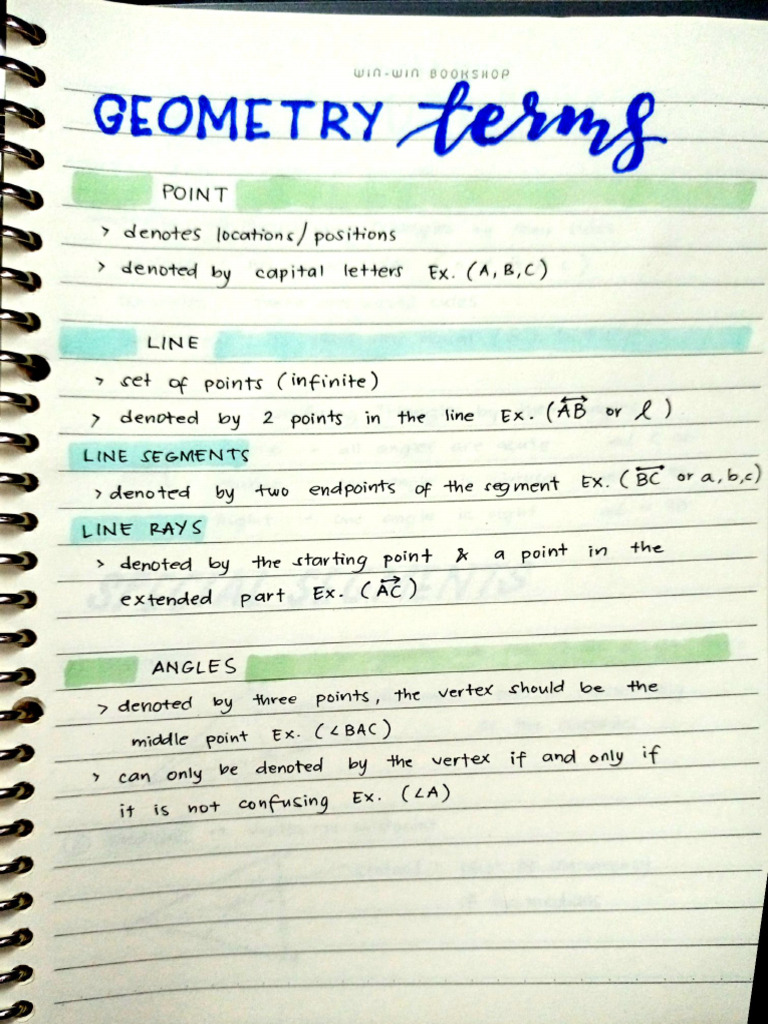 WIN-WIN BOOKSHOP
GEOMETRY terms
POINT
> denotes locations/positions
> denoted by capital letters Ex. (A, B, C)
LINE
> set of points (infinite)
> denoted by 2 points in the line Ex. (A͟B or l).
LINE SEGMENTS
> denoted by two endpoints of the segment Ex. (BC or a, b, c)
LINE RAYS
> denoted by the starting point & a point in the
extended part Ex. (AC)
ANGLES
> denoted by three points, the vertex should be the
middle point Ex. (∠BAC)
> can only be denoted by the vertex if and only if
it is not confusing Ex. (∠A)